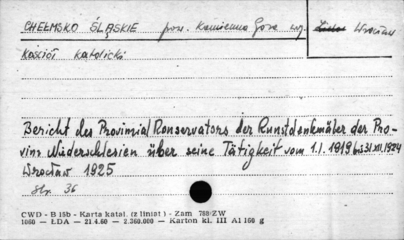 CHEŁMSKO ŚLĄSKIE pow. Kamienna Góra woj. Wrocław
Kościół katolicki
Bericht des Provinzial Konservators der Kunstdenkmäler der Pro-
vinz Niederschlesien über seine Tätigkeit vom 1.I.1919 bis 31.XII.1924
Wrocław 1925
str. 36
CWD - B 15b - Karta katal. (z liniat) - Zam 788/ZW
1060 — ŁDA — 21.4.60 — 2.360.000 — Karton kl. III A1 160 g